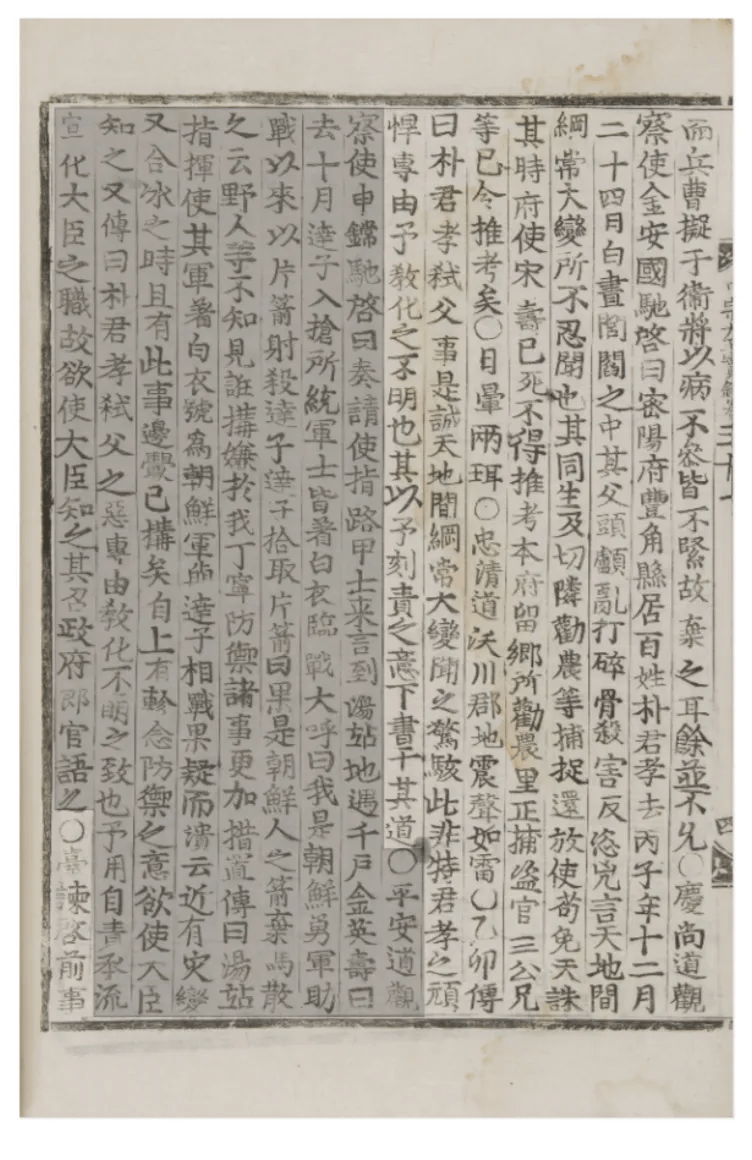 而兵曹擬于衛將以病不參皆不緊故棄之耳餘並不允〇慶尙道觀
察使金安國馳啓曰密陽府豐角縣居百姓朴君孝去丙子年十二月
二十四日白晝閭閻之中其父頭顱亂打碎骨殺害反恣兇言天地間
綱常大變所不忍聞也其同生及切隣勸農等捕捉還放使苟免天誅
其時府使宋壽已死不得推考本府留鄕所勸農里正捕盜官三公兄
等已令推考矣〇日暈兩珥〇忠淸道沃川郡地震聲如雷〇乙卯傳
曰朴君孝弑父事是誠天地間綱常大變聞之驚駭此非特君孝之頑
悍專由予敎化之不明也其以予刻責之意下書于其道〇平安道觀
察使申鏛馳啓曰奏請使指路甲士来言到湯站地遇千戶金英壽曰
去十月達子入搶所統軍士皆著白衣臨戰大呼曰我是朝鮮勇軍助
戰以來以片箭射殺達子達子拾取片箭曰果是朝鮮人之箭棄馬散
之云野人等不知見誑搆嫌於我丁寧防禦諸事更加措置傳曰湯站
指揮使其軍著白衣號為朝鮮軍與達子相戰果疑而潰云近有灾變
又合冰之時且有此事邊釁已搆矣自上有軫念防禦之意欲使大臣
知之又傳曰朴君孝弑父之惡專由敎化不明之致也予用自責承流
宣化大臣之職故欲使大臣知之其召政府郎官語之〇臺諫啓前事